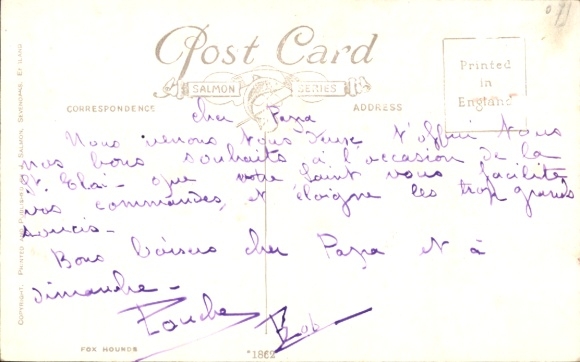 Post Card
SALMON SERIES
CORRESPONDENCE
ADDRESS
Printed
in
England
COPYRIGHT. PRINTED AND PUBLISHED BY J. SALMON, SEVENOAKS, ENGLAND
cher Papa
Nous venons tous deux t'offrir tous
nos bons souhaits à l'occasion de la
St. Eloi - que votre saint vous facilite
vos commandes, et éloigne les trop grands
soucis -
Bons baisers cher Papa et à
dimanche -
Bob
FOX HOUNDS
*1862